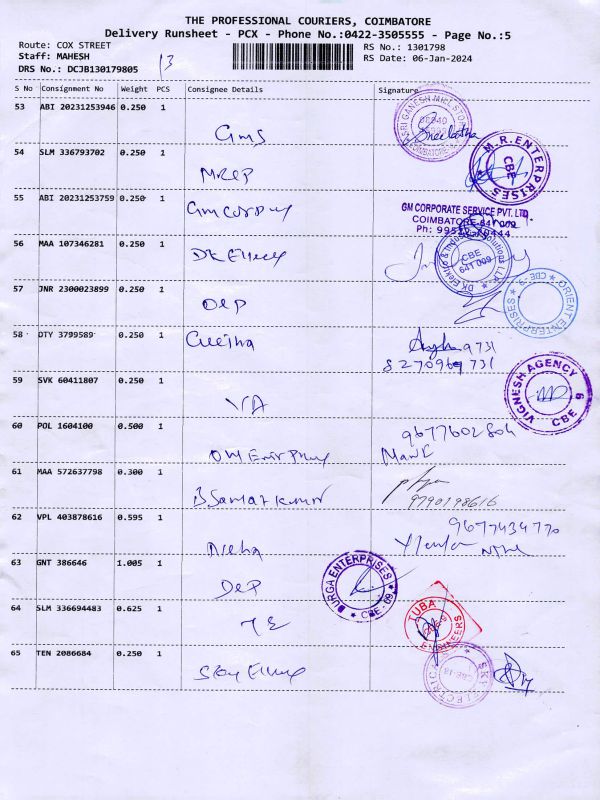 THE PROFESSIONAL COURIERS, COIMBATORE
Delivery Runsheet - PCX - Phone No.:0422-3505555 - Page No.:5
Route: COX STREET
RS No.: 1301798
Staff: MAHESH
RS Date: 06-Jan-2024
DRS No.: DCJB130179805 13
S No Consignment No Weight PCS Consignee Details Signature
53 ABI 20231253946 0.250 1
GMS
SRI GANESH MILL STORES COIMBATORE
54 SLM 336793702 0.250 1
M.R.ENTERPRISES CBE
55 ABI 20231253759 0.250 1
GM CORPORATE SERVICE PVT. LTD
COIMBATORE-641 009
Ph:
56 MAA 107346281 0.250 1
CBE 641 009
57 JNR 2300023899 0.250 1
OEP
ORIENT ENTERPRISES CBE-9
58 DTY 3799589 0.250 1
Geetha
9731
8270969731
59 SVK 60411807 0.250 1
VA
VIGNESH AGENCY CBE 9
60 POL 1604100 0.500 1
9677602804
61 MAA 572637798 0.300 1
B Samat kumar
9790198616
62 VPL 403878616 0.595 1
9677434770
Nisha
63 GNT 386646 1.005 1
DEP
DURGA ENTERPRISES CBE-09
64 SLM 336694483 0.625 1
TE
TUBA ENGINEERS
65 TEN 2086684 0.250 1
SKY ELECTRICALS CBE-18